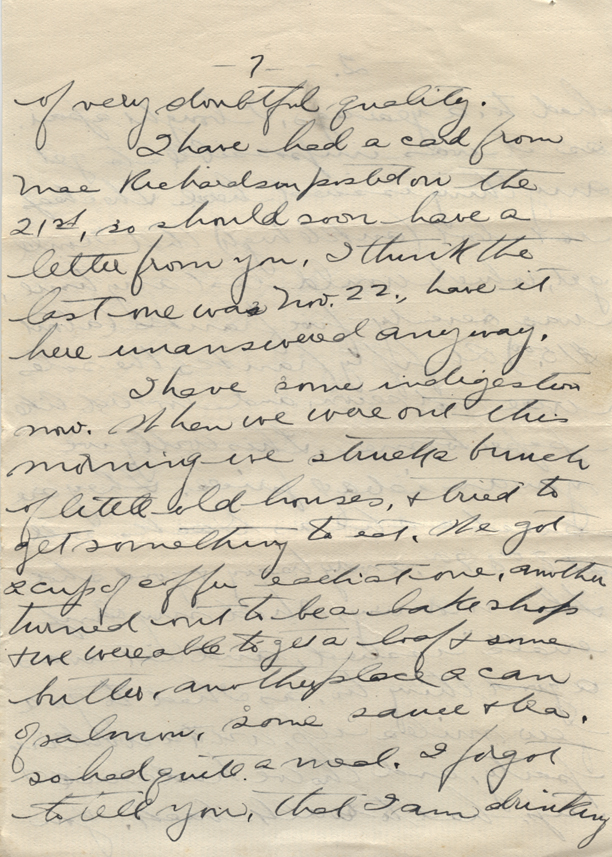 -7-
of very doubtful quality.
I have had a card from
Mae Richardson posted on the
21st, so should soon have a
letter from you, I think the
last one was Nov. 22, have it
here unanswered anyway.
I have some indigestion
now. When we were out this
morning we struck a bunch
of little old houses, & tried to
get something to eat. We got
a cup of coffee each at one, another
turned out to be a bake shop
& we were able to get a loaf & some
butter, another place a can
of salmon, some sauce & tea.
so had quite a meal. I forgot
to tell you, that I am drinking